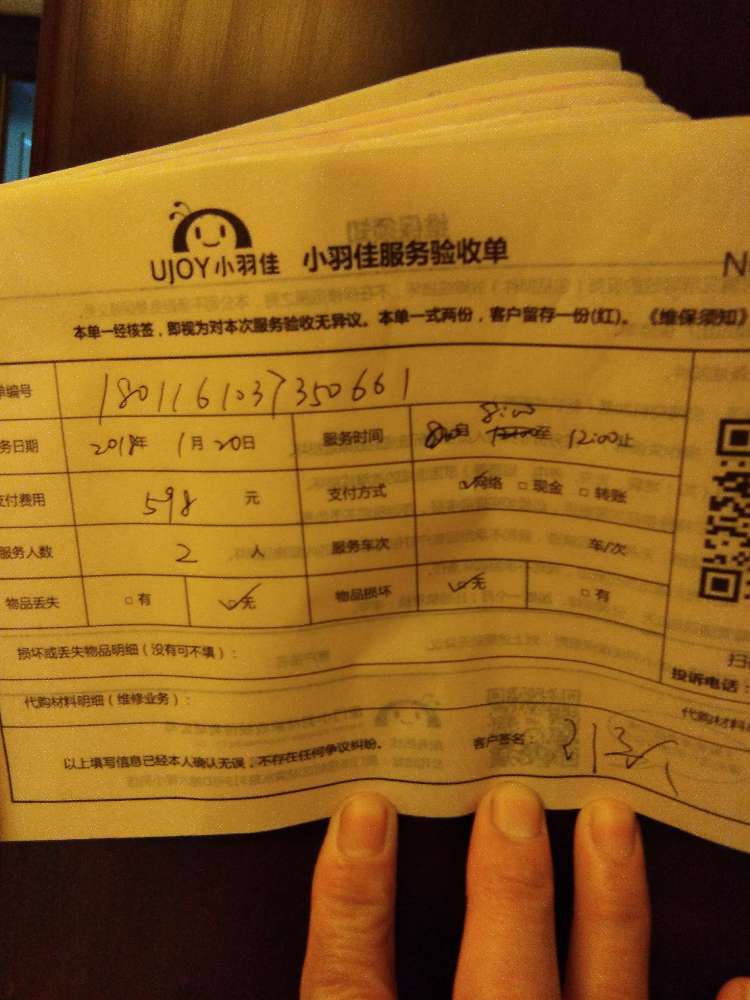 UJOY小羽佳 小羽佳服务验收单
N
本单一经核签，即视为对本次服务验收无异议。本单一式两份，客户留存一份(红)。《维保须知》
单编号 180116103735066​1
务日期 2018年 1月20日 服务时间 8:00至 12:00止
支付费用 598 元 支付方式 ☑网络 □现金 □转账
服务人数 2 人 服务车次 车/次
物品丢失 □有 ☑无 物品损坏 ☑无 □有
损坏或丢失物品明细（没有可不填）：
扫
投诉电话：
代购材料明细（维修业务）：
代购材料
以上填写信息已经本人确认无误，不存在任何争议纠纷。 客户签名：